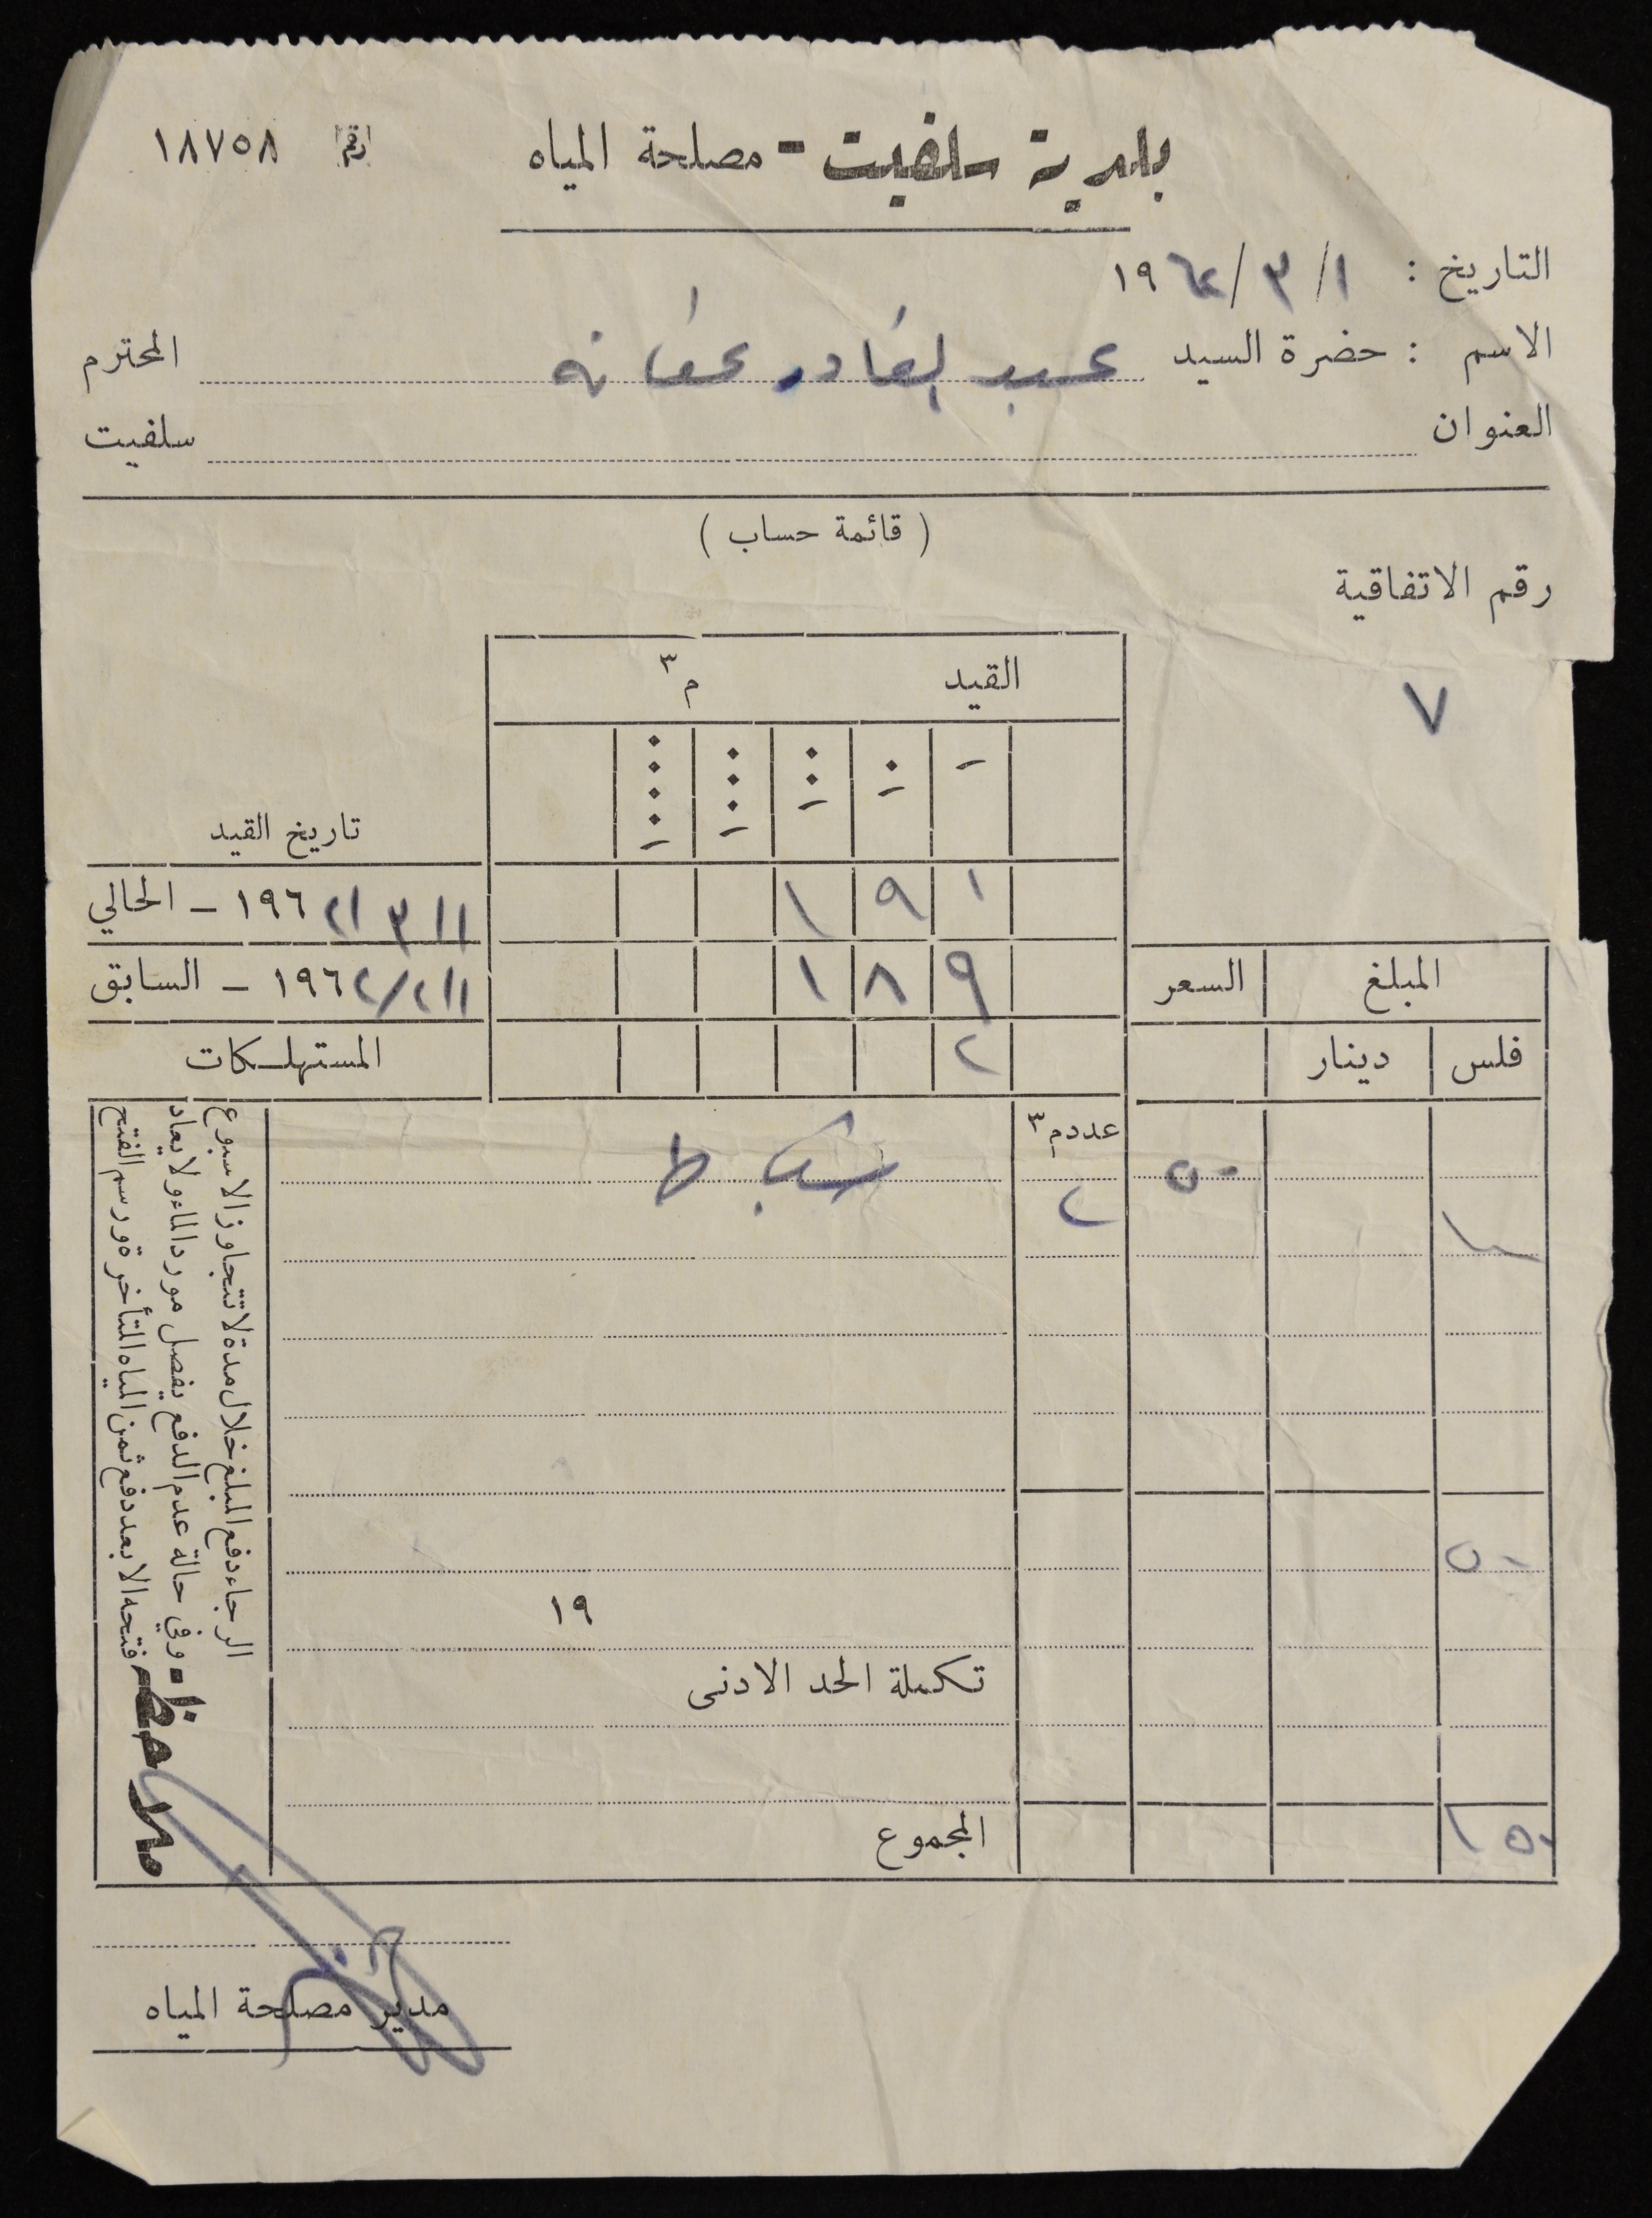 بلدية سلفيت - مصلحة المياه
رقم ١٨٧٥٨
التاريخ : ١ / ٣ / ١٩٦٢
الاسم : حضرة السيد عبد القادر عفانه المحترم
العنوان سلفيت
( قائمة حساب )
رقم الاتفاقية
٧
القيد م٣
تاريخ القيد
١ ٩ ١ ١ / ٣ / ١٩٦٢ – الحالي
١ ٨ ٩ ١ / ٢ / ١٩٦٢ – السابق
٢ المستهلكات
المبلغ السعر
فلس دينار
عدد م٣
٥٠ شباط
١٠٠ ٢
٥٠
١٩
تكملة الحد الادنى
١٥٠ المجموع
ملاحظة -
الرجاء دفع المبلغ خلال مدة لا تتجاوز الاسبوع
وفي حالة عدم الدفع يفصل مورد الماء ولا يعاد
فتحه الا بعد دفع ثمن المياه المتأخرة ورسم الفتح
مدير مصلحة المياه